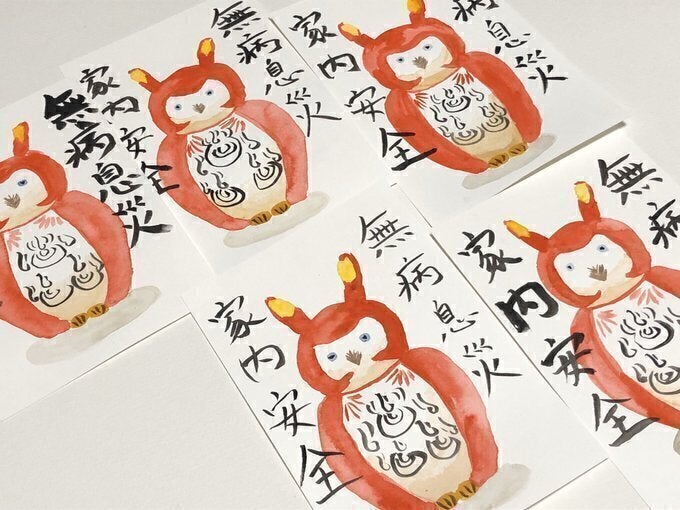 無病息災
無病息災
家内安全
病息災
家内安全
無病息災
家内安全
無病
家内安全